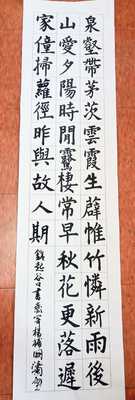 泉壑帶茅茨雲霞生薜惟竹憐新雨後
山愛夕陽時閒鷺棲常早秋花更落遲
家僮掃蘿徑昨與故人期
錢起谷口書齋寄楊補闕